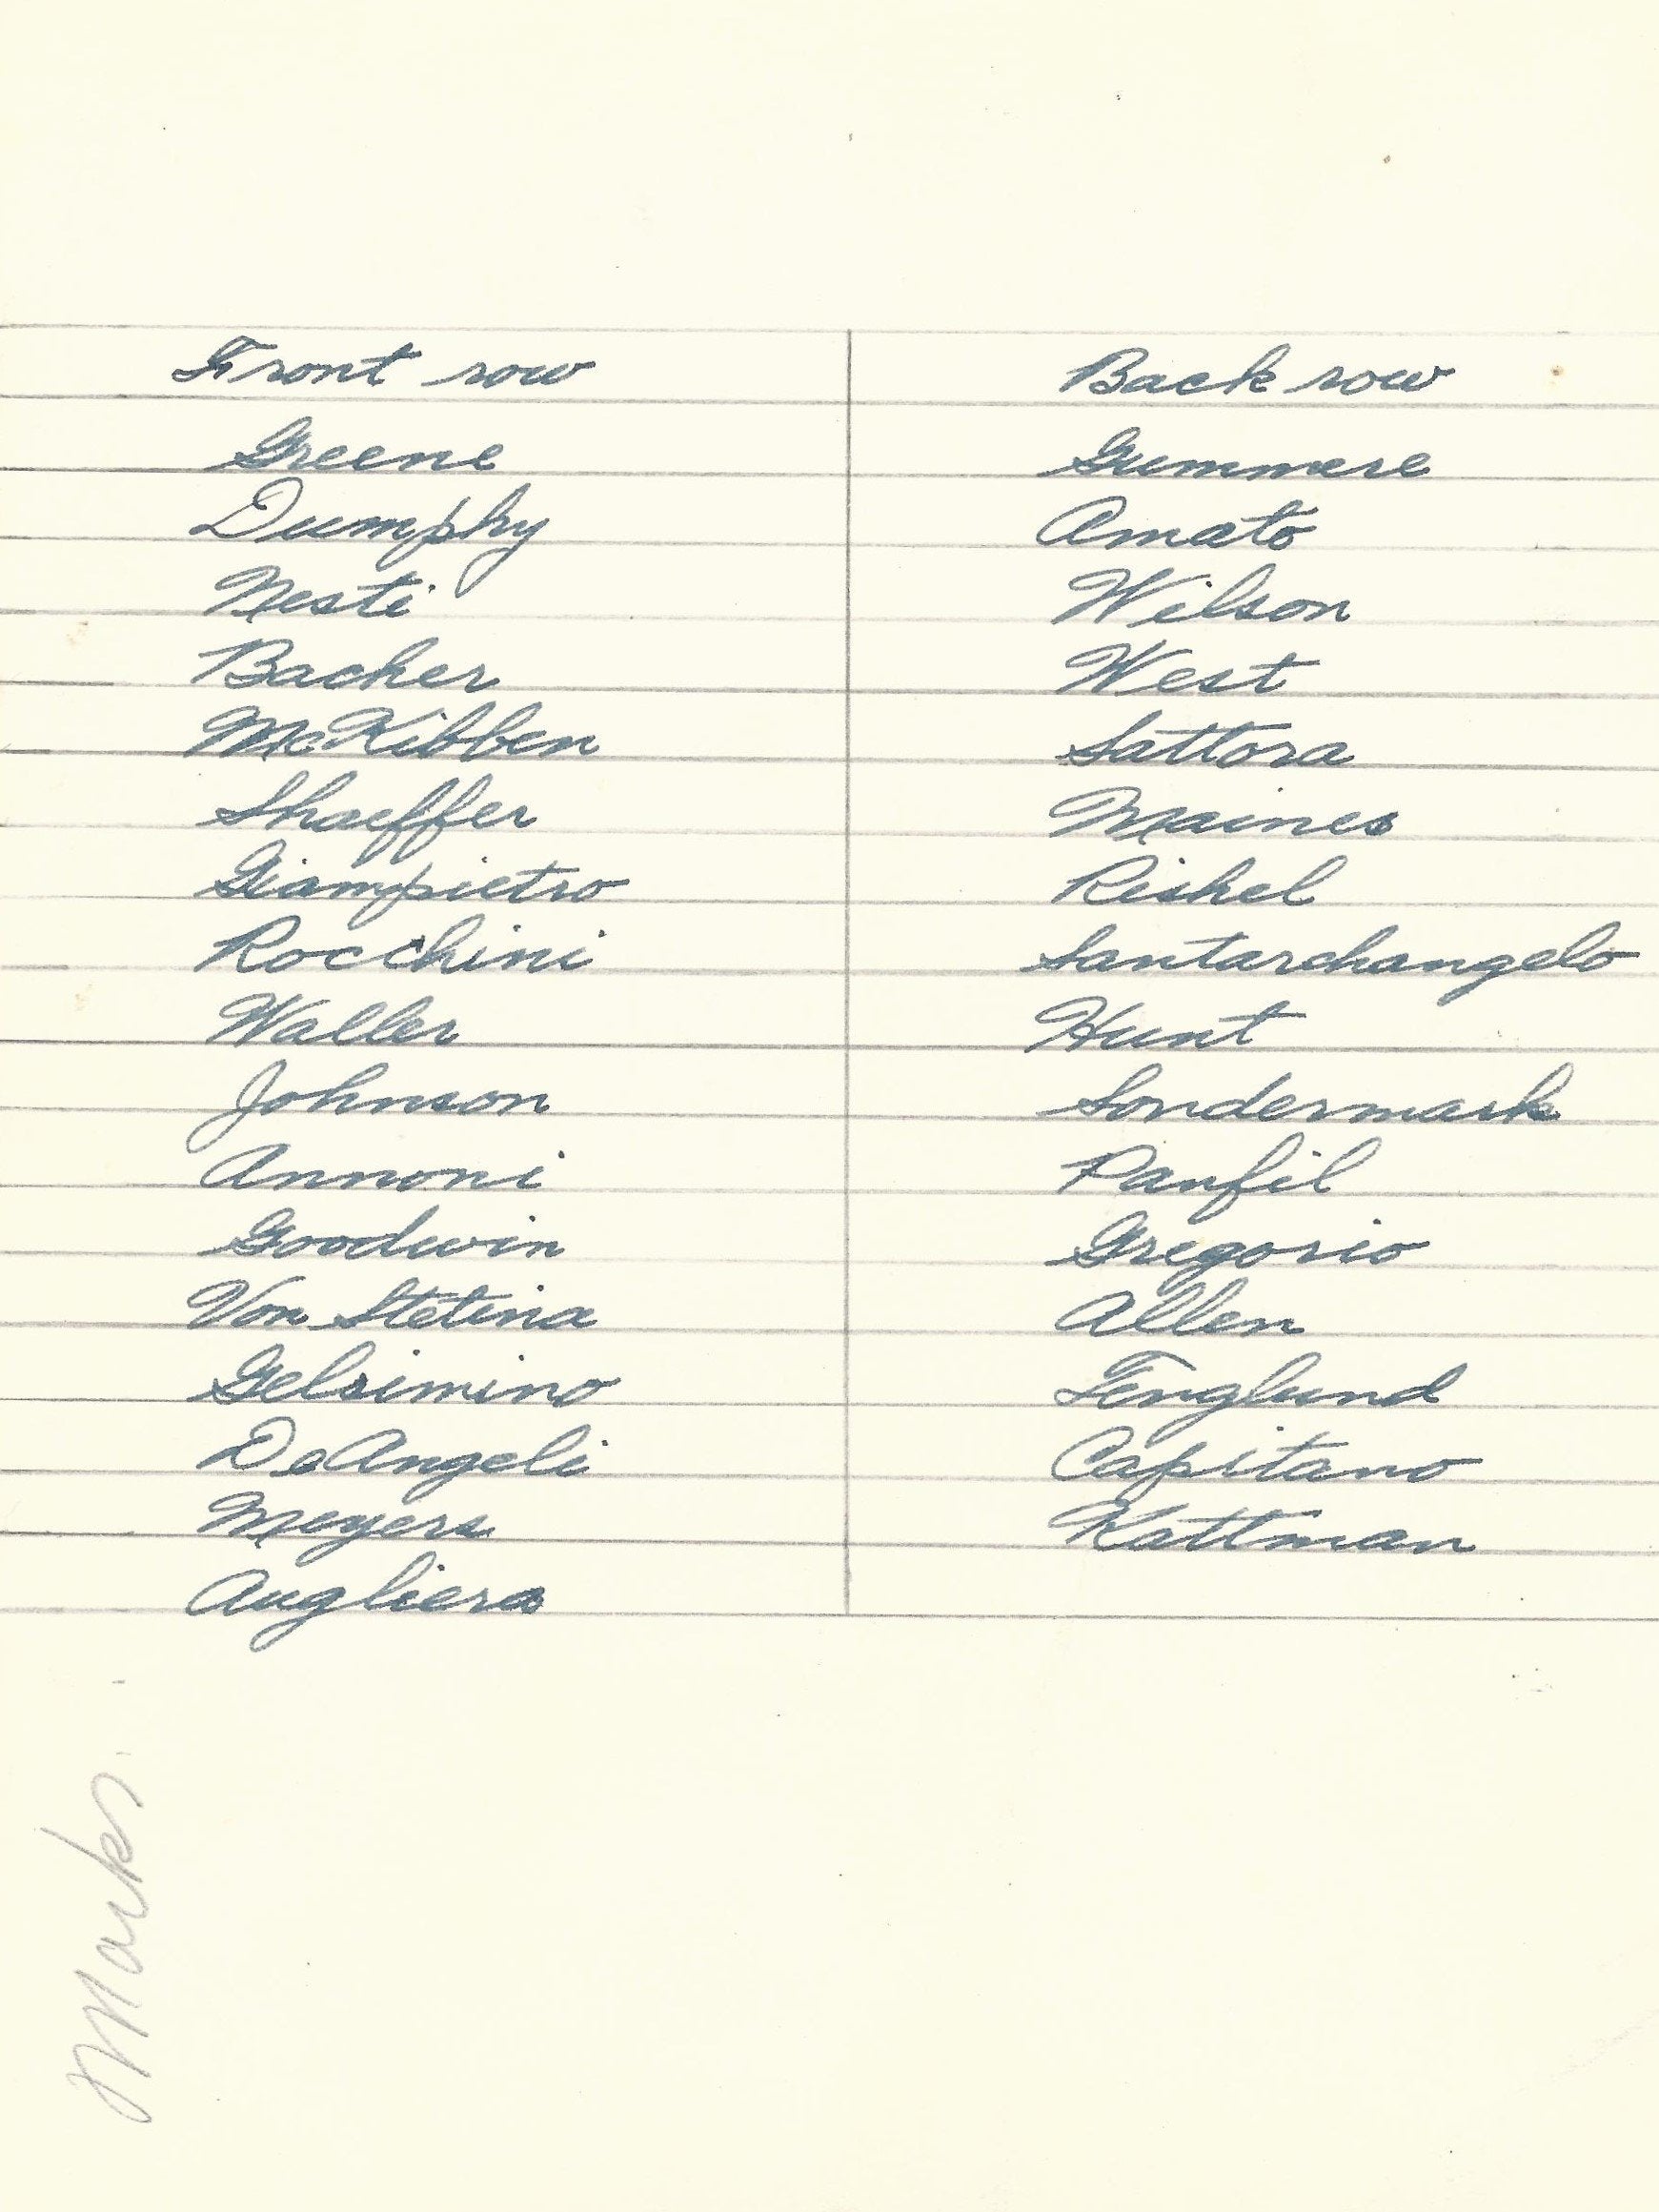 Front row
Greene
Dumphy
Nesti
Bacher
McKibben
Shaeffer
Giampietro
Rocchini
Waller
Johnson
Annoni
Goodwin
Von Stetina
Gelsimino
DeAngeli
Meyers
Augliera
Back row
Gummere
Amato
Wilson
West
Sattora
Maines
Rishel
Santarchangelo
Hunt
Sondermark
Panfil
Gregorio
Allen
Fenglund
Capitano
Kattman
Marks